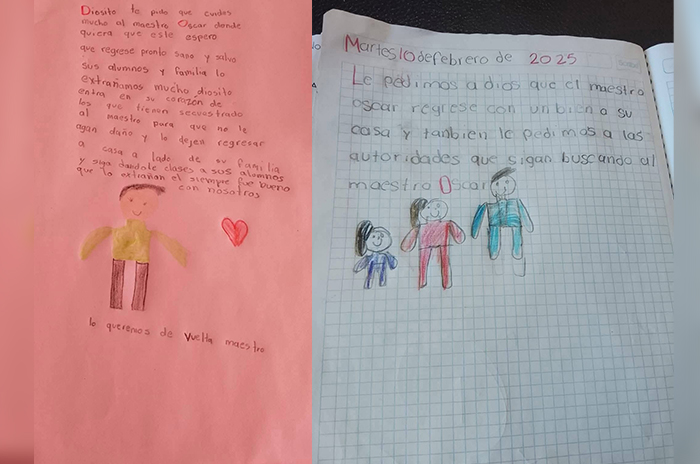 Diosito te pido que cuides
mucho al maestro Oscar donde
quiera que este espero
que regrese pronto sano y salvo
sus alumnos y familia lo
extrañamos mucho diosito
entra en su corazón de
los que tienen secuestrado
al maestro para que no le
agan daño y lo dejen regresar
a casa a lado de su familia
y siga dandole clases a sus alumnos
que lo extrañan el siempre fue bueno
con nosotros
lo queremos de vuelta maestro
Martes 10 de febrero de 2025
Le pedimos a dios que el maestro
oscar regrese con un bien a su
casa y tanbien le pedimos a las
autoridades que sigan buscando al
maestro Oscar